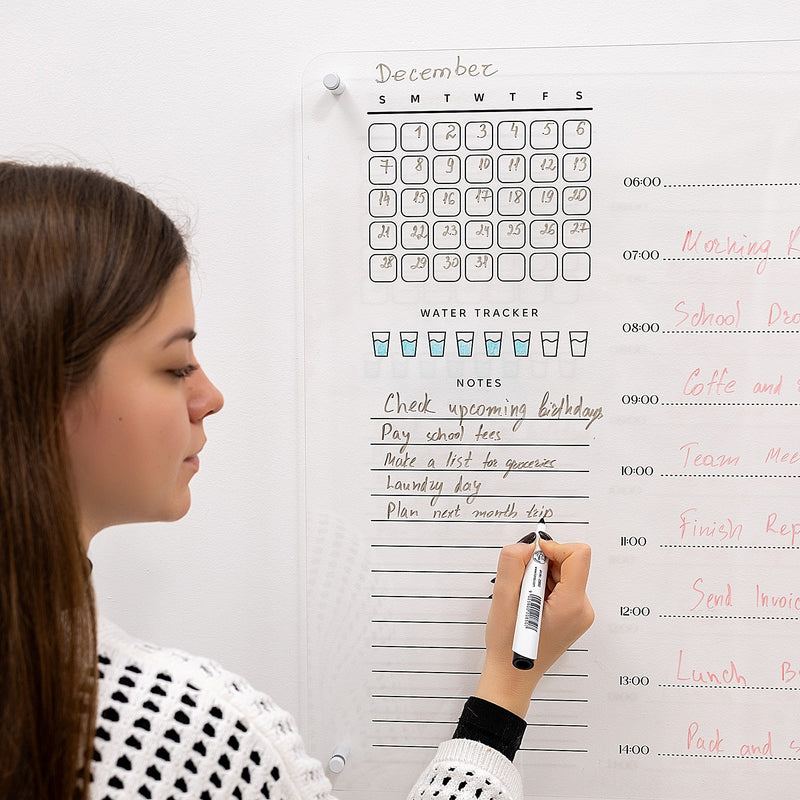 December
S M T W T F S
1 2 3 4 5 6
7 8 9 10 11 12 13
14 15 16 17 18 19 20
21 22 23 24 25 26 27
28 29 30 31
WATER TRACKER
NOTES
Check upcoming birthdays
Pay school fees
Make a list for groceries
Laundry day
Plan next month trip
06:00
07:00 Morning
08:00 School
09:00 Coffe and
10:00 Team
11:00 Finish
12:00 Send
13:00 Lunch
14:00 Pack and